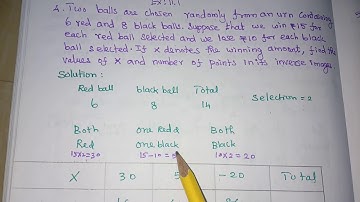 Ex: 11.1
4. Two balls are chosen randomly from an urn containing
6 red and 8 black balls. Suppose that we win ₹15 for
each red ball selected and we lose ₹10 for each black
ball selected. If X denotes the winning amount, find the
values of X and number of points in its inverse images
Solution:
Red ball black ball Total
6 8 14 Selection = 2
Both one Red & Both
Red one black Black
15x2=30 15-10=5 10x2=20
X 30 5 -20 Total